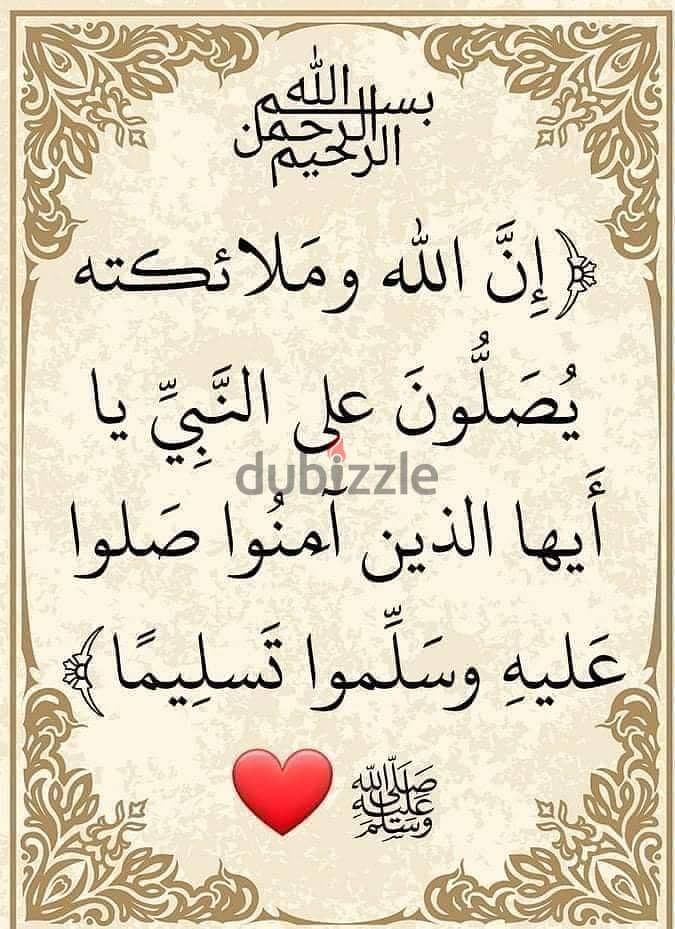 بسم الله
الرحمن
الرحيم
﴿إِنَّ الله ومَلائكته
يُصَلُّونَ على النَّبِيِّ يا
dubizzle
أَيها الذين آمنُوا صَلوا
عَليهِ وسَلِّموا تَسلِيمًا﴾
صَلَّى اللّٰه
عَلَيْهِ
وَسَلَّمَ ❤️